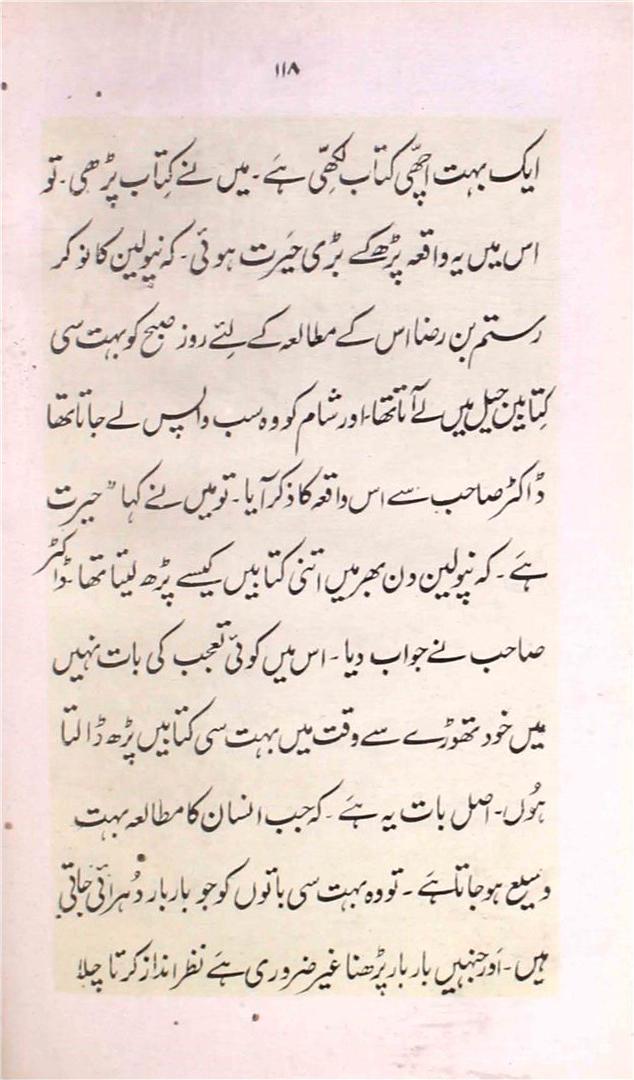 ۱۱۸
ایک بہت اچھّی کتاب لکھّی ہے۔ میں نے کتاب پڑھی۔ تو
اس میں یہ واقعہ پڑھ کے بڑی حَیرت ہوئی۔ کہ نپولین کا نوکر
رستم بن رضا اس کے مطالعہ کے لئے روز صبح کو بہت سی
کتابیں جیل میں لے آتا تھا۔ اور شام کو وہ سب واپس لے جاتا تھا
ڈاکٹر صاحب سے اس واقعہ کا ذکر آیا۔ تو میں نے کہا "حیرت
ہے۔ کہ نپولین دن بھر میں اتنی کتابیں کیسے پڑھ لیتا تھا۔ ڈاکٹر
صاحب نے جواب دیا۔ اس میں کوئی تعجب کی بات نہیں
میں خود تھوڑے سے وقت میں بہت سی کتابیں پڑھ ڈالتا
ہُوں۔ اصل بات یہ ہے۔ کہ جب انسان کا مطالعہ بہت
وسیع ہو جاتا ہے۔ تو وہ بہت سی باتوں کو جو بار بار دُہرائی جاتی
ہیں۔ اَور جنہیں بار بار پڑھنا غیر ضروری ہے نظر انداز کرتا چلا